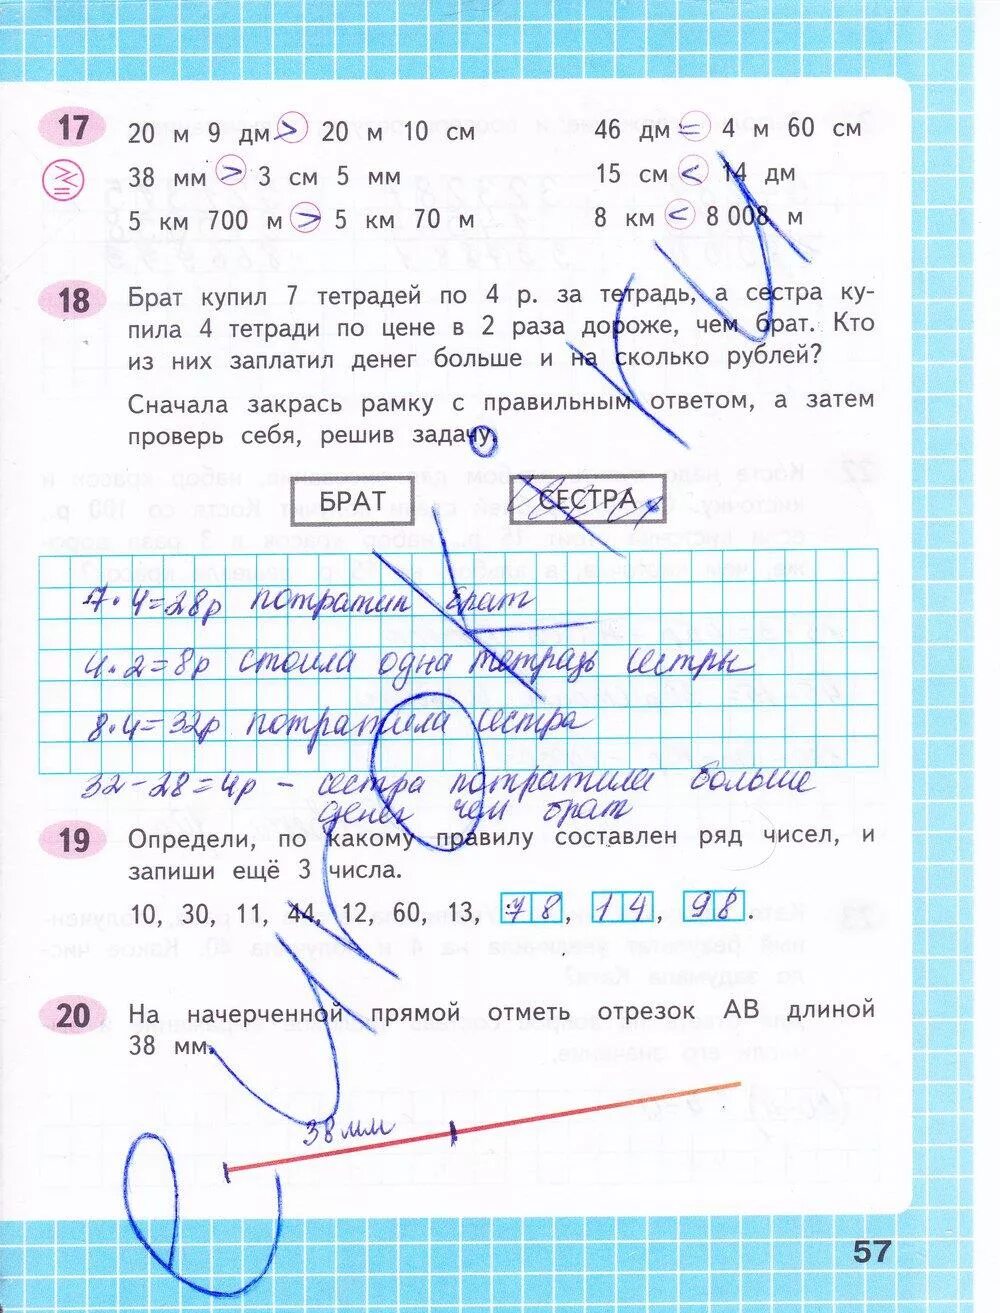 17 20 м 9 дм > 20 м 10 см 46 дм = 4 м 60 см
38 мм > 3 см 5 мм 15 см < 14 дм
5 км 700 м > 5 км 70 м 8 км < 8 008 м
18 Брат купил 7 тетрадей по 4 р. за тетрадь, а сестра ку-
пила 4 тетради по цене в 2 раза дороже, чем брат. Кто
из них заплатил денег больше и на сколько рублей?
Сначала закрась рамку с правильным ответом, а затем
проверь себя, решив задачу.
БРАТ СЕСТРА
7·4=28р потратил брат
4·2=8р стоила одна тетрадь сестры
8·4=32р потратила сестра
32-28=4р - сестра потратила больше
денег чем брат
19 Определи, по какому правилу составлен ряд чисел, и
запиши ещё 3 числа.
10, 30, 11, 44, 12, 60, 13, 78, 14, 98.
20 На начерченной прямой отметь отрезок АВ длиной
38 мм.
38 мм
57